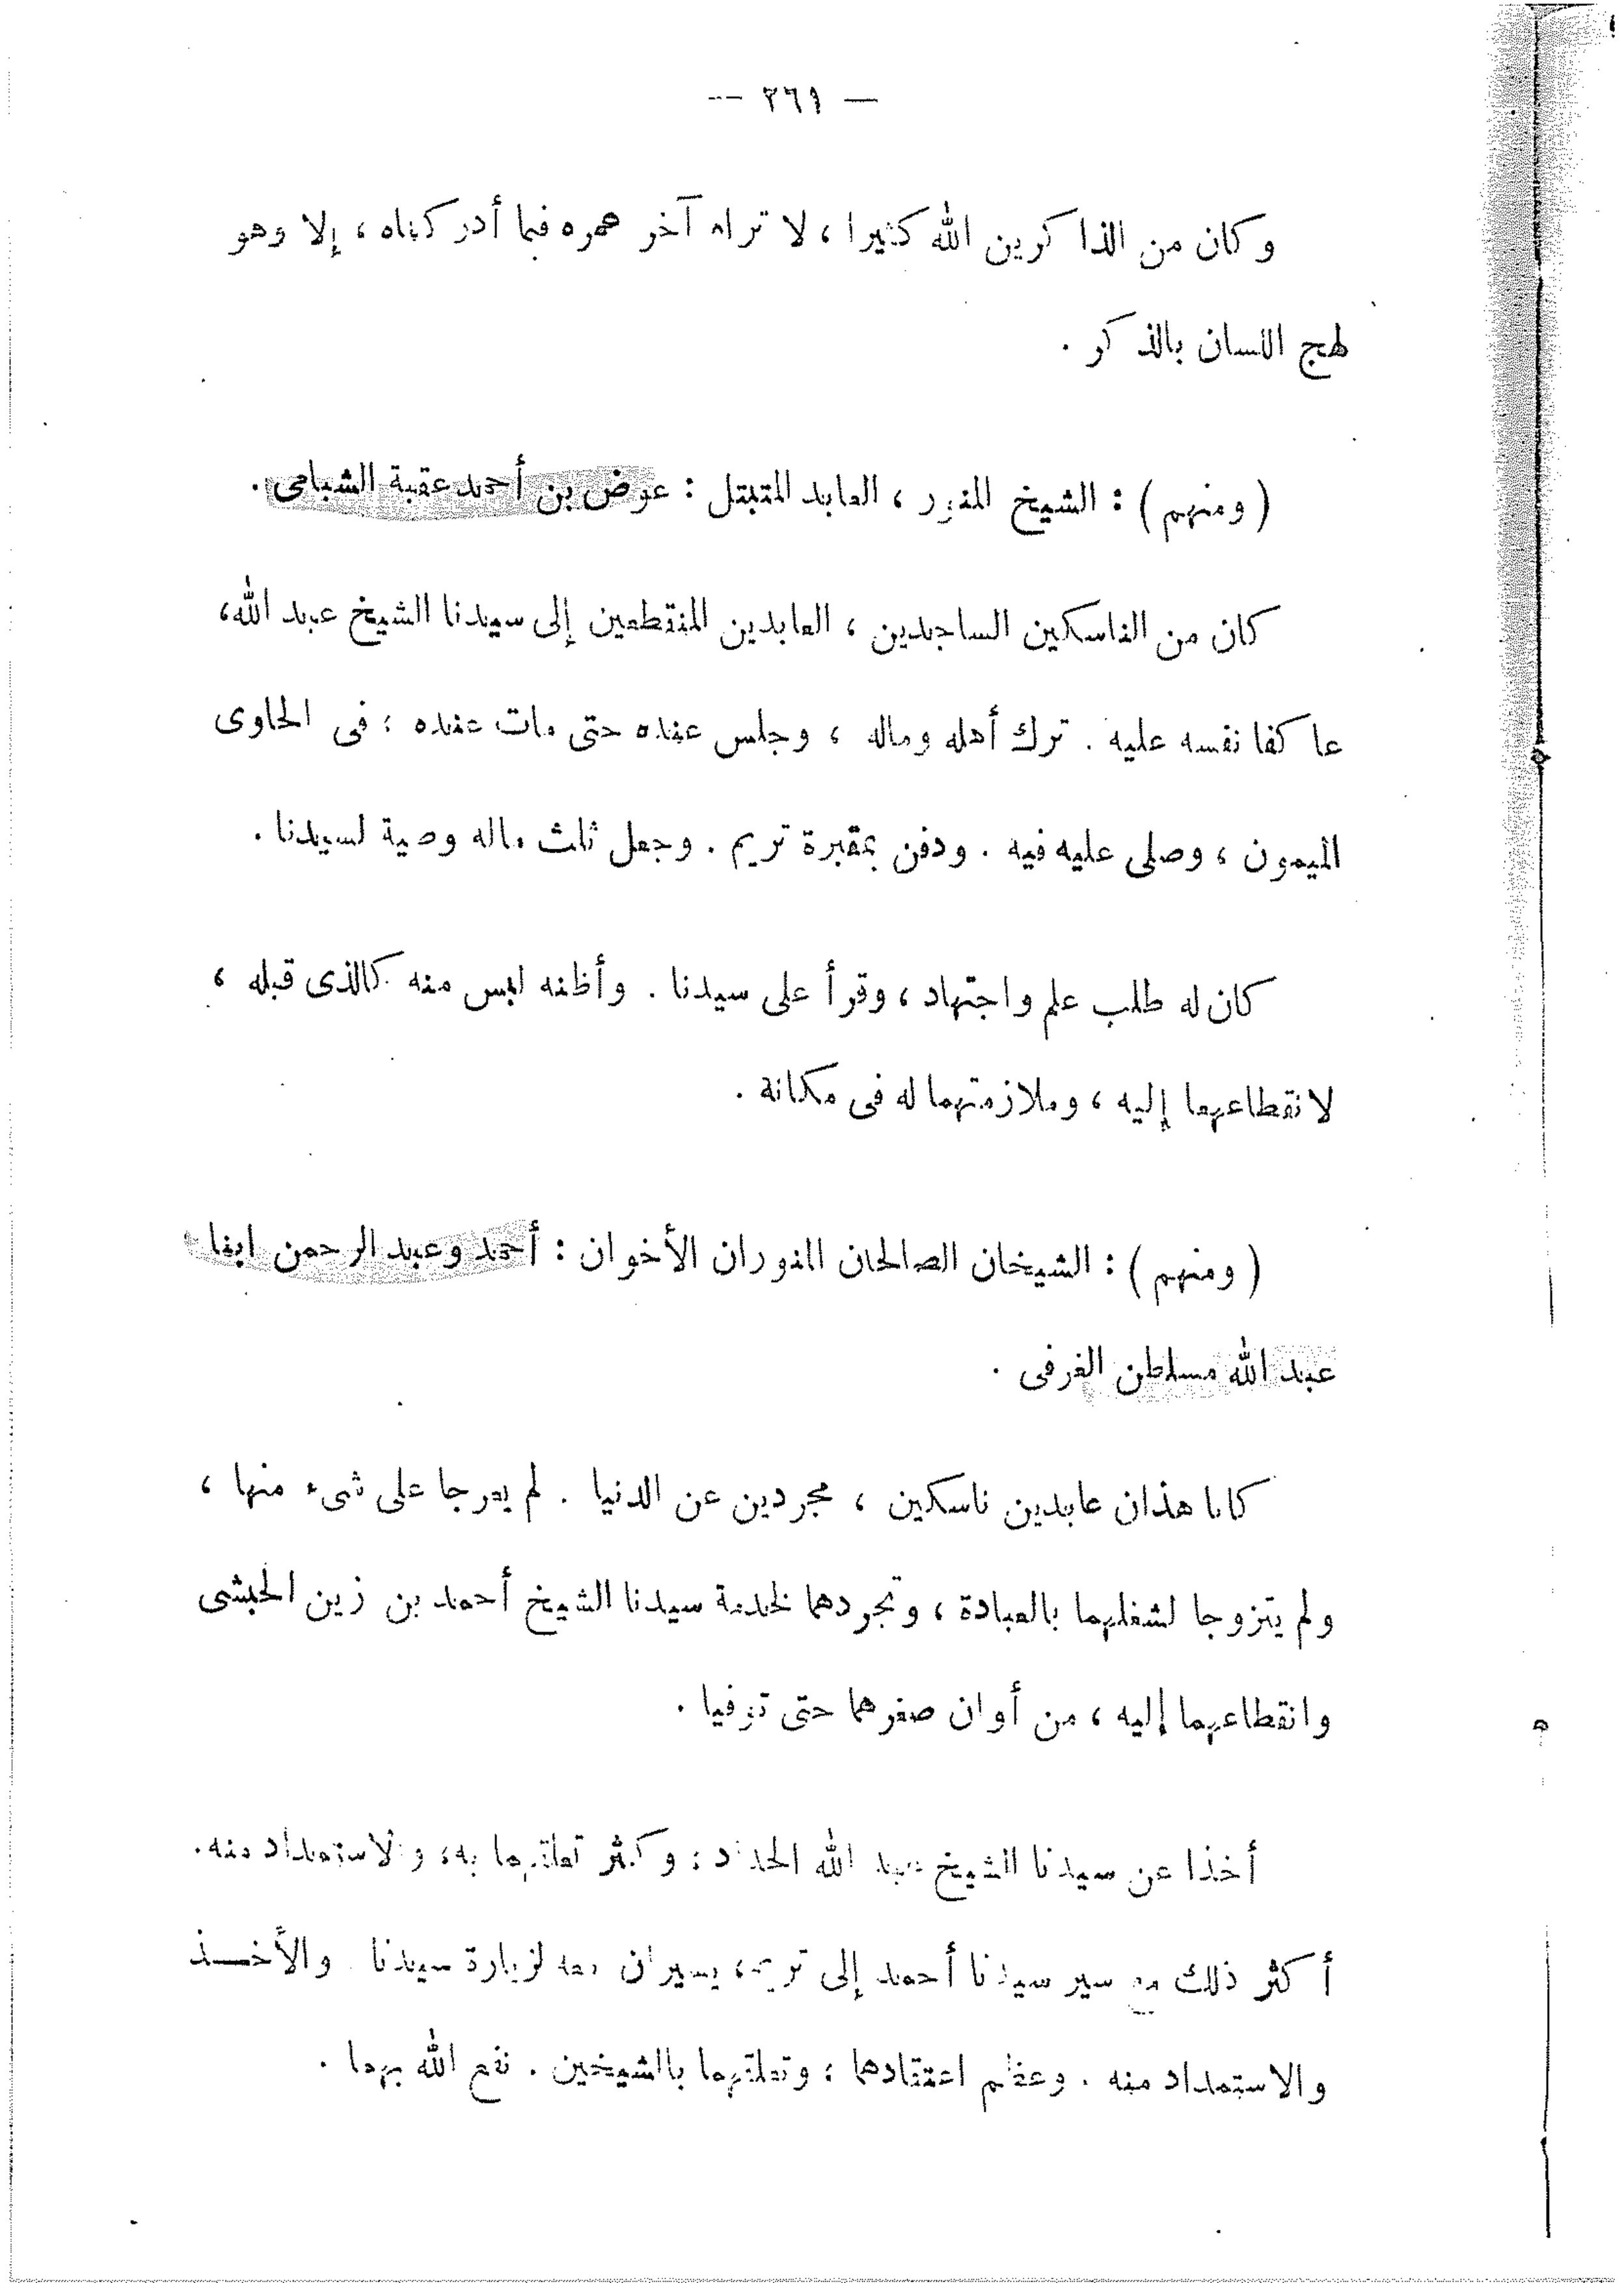 — ٣٦١ —
وكان من الذاكرين الله كثيرا ، لا تراه آخر عمره فيما أدركناه ، إلا وهو
لهج اللسان بالذكر .
( ومنهم ) : الشيخ المنور ، العابد المتبتل : عوض بن أحمد عقبة الشبامى .
كان من الناسكين الساجدين ، العابدين المنقطعين إلى سيدنا الشيخ عبد الله ،
عاكفا نفسه عليه . ترك أهله وماله ، وجلس عنده حتى مات عنده ؛ فى الحاوى
الميمون ، وصلى عليه فيه . ودفن بمقبرة تريم . وجعل ثلث ماله وصية لسيدنا .
كان له طلب علم واجتهاد ، وقرأ على سيدنا . وأظنه لبس منه كالذى قبله ،
لانقطاعهما إليه ، وملازمتهما له فى مكانة .
( ومنهم ) : الشيخان الصالحان المنوران الأخوان : أحمد وعبد الرحمن ابنا
عبد الله مسلطن الغرفى .
كانا هذان عابدين ناسكين ، مجردين عن الدنيا . لم يعرجا على شىء منها ،
ولم يتزوجا لشغلهما بالعبادة ، وتجردهما لخدمة سيدنا الشيخ أحمد بن زين الحبشى
وانقطاعهما إليه ، من أوان صغرهما حتى توفيا .
أخذا عن سيدنا الشيخ عبد الله الحداد ؛ وكثر تعلقهما به ، والاستمداد منه .
أكثر ذلك مع سير سيدنا أحمد إلى تريم ، يسيران معه لزيارة سيدنا والأخـــذ
والاستمداد منه . وعظم اعتقادهما ؛ وتعلقهما بالشيخين . نفع الله بهما .